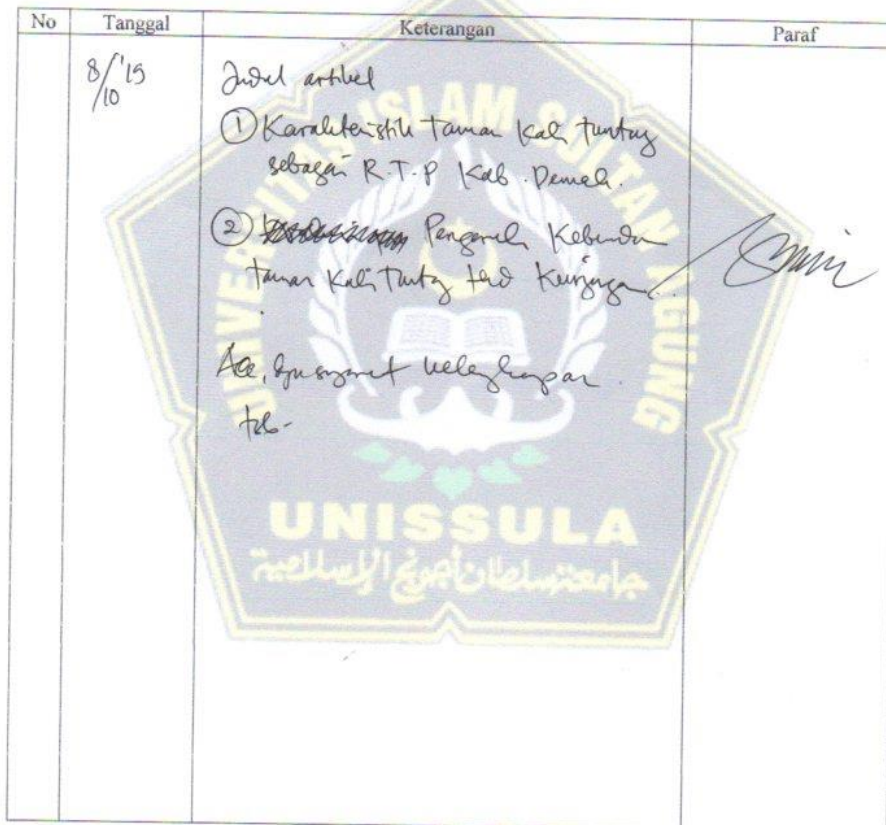 No Tanggal Keterangan Paraf
8/10 '19 Judul artikel
① Karakteristik Taman Kali Tuntang
sebagai R.T.P Kab. Demak.
② Pengaruh
Taman Kali Tuntang thd Kunjungan
Acc, kelengkapan
UNIVERSITAS ISLAM SULTAN AGUNG
UNISSULA
جامعة سلطان أجونج الإسلامية